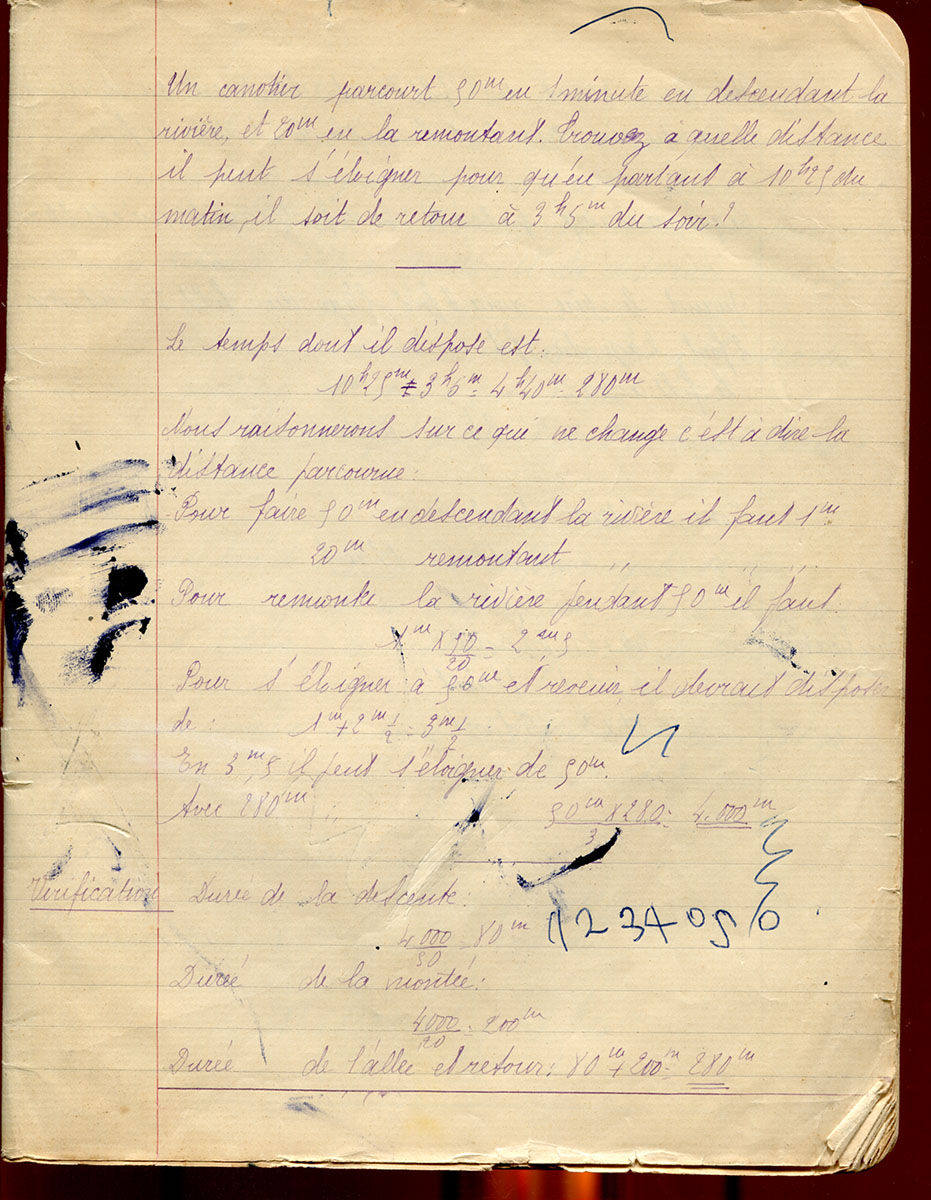 Un canotier parcourt 50ᵐ en 1 minute en descendant la
rivière, et 20ᵐ en la remontant. Trouvez à quelle distance
il peut s'éloigner pour qu'en partant à 10ʰ25 du
matin, il soit de retour à 3ʰ5ᵐ du soir?
Le temps dont il dispose est:
10ʰ25ᵐ 3ʰ5ᵐ = 4ʰ40ᵐ = 280ᵐ
Nous raisonnerons sur ce qui ne change c'est à dire la
distance parcourue:
Pour faire 50ᵐ en descendant la rivière il faut 1ᵐ
20ᵐ remontant ,, ,, ,,
Pour remonter la rivière pendant 50ᵐ il faut
1ᵐ × 50/20 = 2ᵐ 5
Pour s'éloigner à 50ᵐ et revenir, il devrait disposer
de: 1ᵐ + 2ᵐ 1/2 = 3ᵐ 1/2
En 3ᵐ,5 il peut s'éloigner de 50ᵐ.
Avec 280ᵐ ,, 50ᵐ × 280/3 = 4.000ᵐ
Vérification Durée de la descente:
4000/50 = 80ᵐ
1 2 3 4 0 5 0
Durée de la montée:
4000/20 = 200ᵐ
Durée de l'allée et retour: 80ᵐ + 200ᵐ = 280ᵐ